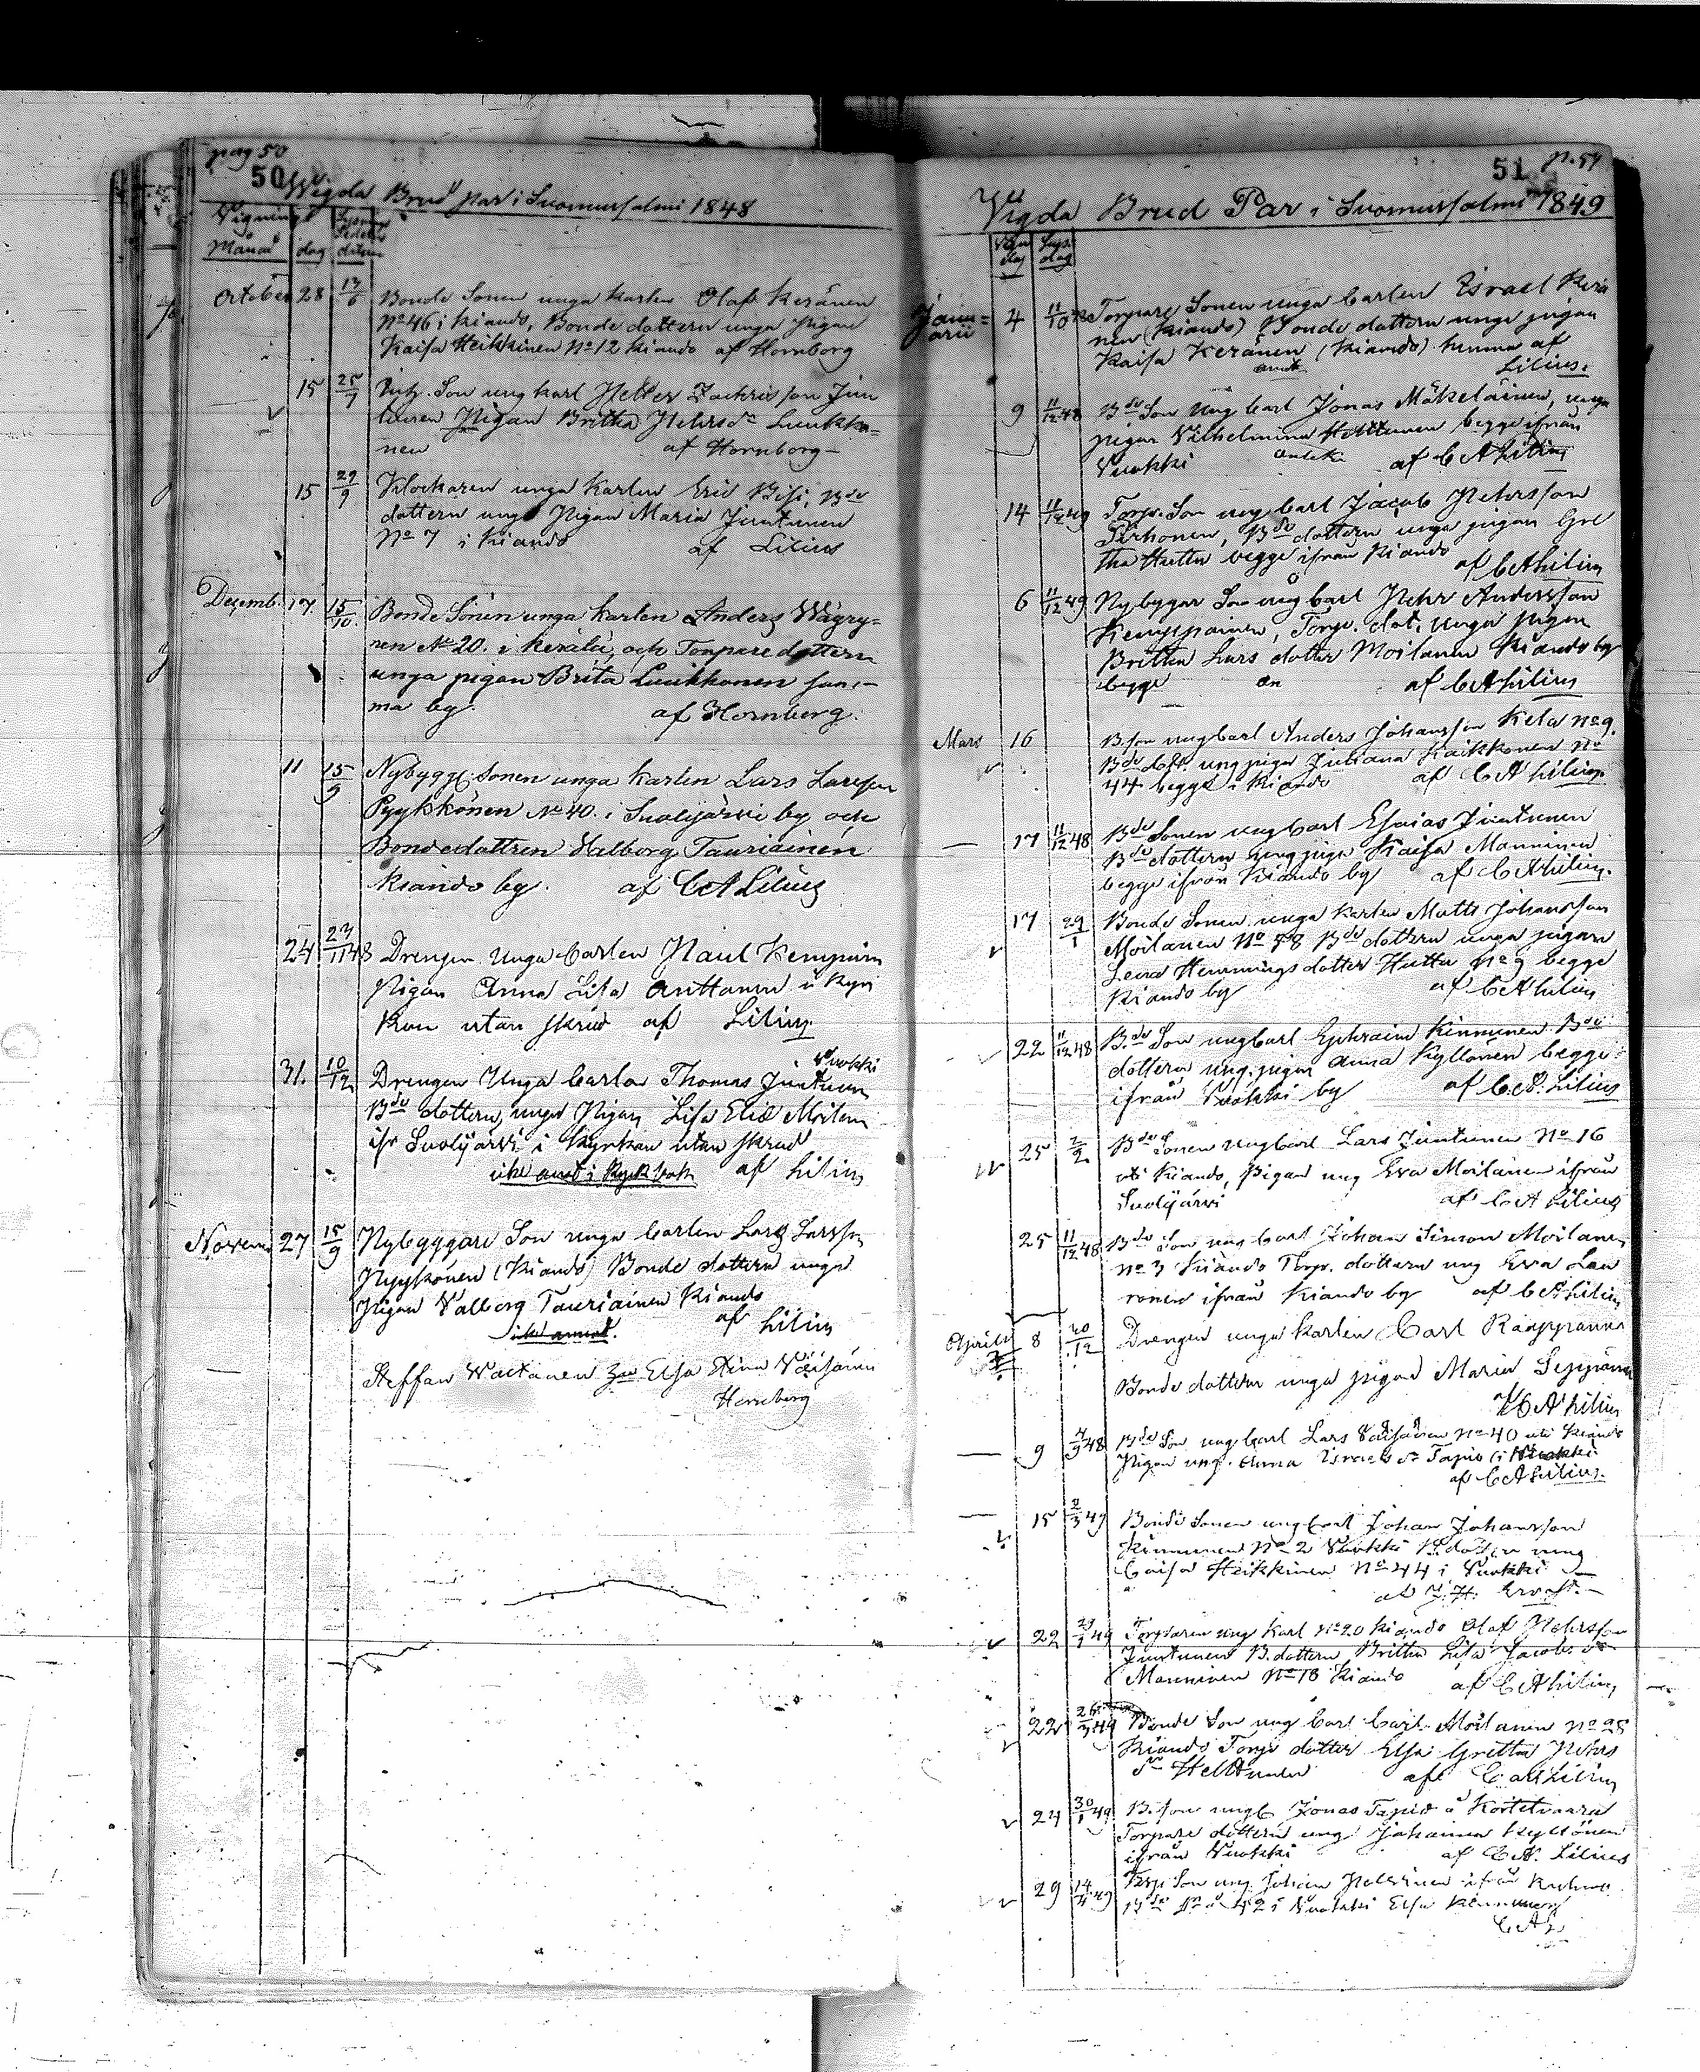 pag 50
50
Wigda Brud par i Suomussalmi 1848
Månad dag
October 28 13/6 Bonde Sonen unga Karlen Olof Keränen
No 46 i Kiando, Bonde dottern unga Pigan
Kaisa Heikkinen No 12 Kiando af Hornborg
15 25/9 Son ung karl Petter Zachrisson Jun
tunen Pigan Britha Pehrsdr Luukko=
nen af Hornborg
15 29/9 Klockaren unga Karlen Eric Bisi, Bde
dottern unga Pigan Maria Juntunen
No 7 i Kiando af Lilius
Decemb. 17 15/10 Bonde Sonen unga Karlen Anders Wägry=
nen No 20. i Kerälä, och Torpare dottern
unga pigan Brita Luukkonen sam=
ma by. af Hornborg.
11 15/9 Nybygg. Sonen unga Karlen Lars Larsson
Pyykkönen No 40. i Suolijärvi by och
Bondedottren Walborg Tauriainen
Kiando by. af CA Lilius
24 23/11 48 Drengen Unga Carlen Paul Kempain
Pigan Anna Lisa Anttonen i Kyr
kan utan skrud af Lilius
31. 10/12 Drengen Unga Carlen Thomas Juntunen
Vuokki
Bde dottern unga Pigan Lisa Moilan
ifr Suolijärvi i Kyrkan utan skrud
af Lilius
Novem 27 15/9 Nybyggare Son unga Carlen Lars Larsson
Pyykönen (Kiando) Bonde dottern unga
Pigan Valborg Tauriainen Kiando
af Lilius
Steffan Vaitanen Elsa Stina Väisänen
Hornborg
51 p. 51
Vigda Brud Par i Suomussalmi 1849
Janu=
arii
4 11/10 Torpare Sonen unga Carlen Israel Kerä
nen (Kiando) Bonde dottern unga pigan
Kaisa Keränen (Kiando) af
Lilius.
9 11/12 48 Bde Son Ung Carl Jonas Mäkeläinen, unga
pigan Vilhelmina begge ifrån
Vuokki af CA Lilius
14 11/12 49 Torp. Son ung Carl Jacob Pehrsson
Pirhonen, Bde dottern unga pigan Gre
tha Huttu begge ifrån Kiando
af CA Lilius
6 11/12 49 Nybyggar Son ung Carl Pehr Andersson
Kemppainen, Torp. dot. unga pigan
Britta Lars dotter Moilanen Kiando by
begge af CA Lilius
Mars 16 B. son ung Carl Anders Johansson Kela No 9
Bde dott. ung piga Juliana Kaikkonen No
44 begge i Kiando af CA Lilius.
17 11/12 48 Bde Sonen ung Carl Esaias Juntunen
Bde dottern ung piga Kaisa Manninen
begge ifrån Kiando by af CA Lilius.
17 29/1 Bonde Sonen unga Karlen Matts Johansson
Moilanen No 48 Bde dottern unga pigan
Lena Hemmings dotter Huttu No 9 begge
Kiando by af CA Lilius
22 11/12 48 B.de Son ung Carl Ephraim Kinnunen Bde
dottern ung. pigan Anna Kyllönen begge
ifrån Vuokki by af C.A. Lilius
25 2/2 Bde Sonen ung Carl Lars Juntunen No 16
uti Kiando, Pigan ung Eva Moilanen ifrån
Suolijärvi af CA Lilius
25 11/12 48 Bde Son ung Carl Johan Simon Moilanen
No 3 Kiando Torp. dottern ung Eva Lau
ronen ifrån Kiando by af CA Lilius
Aprill 8 10/12 Drengen unga Karlen Carl Räppänen
Bonde dottern unga pigan Maria Seppänen
CA Lilius
9 4/9 48 Bde Son ung Carl Lars Väisänen No 40 uti Kiando
Pigan ung. Anna Israels dr Tapio i Vuokki
af CA Lilius.
15 2/3 49 Bonde Sonen ung Carl Johan Johansson
Kinnunen No 2 Vuokki B. dottern ung
Caisa Heikkinen No 44 i Vuokki
22 29/1 49 Torparen ung Karl No 20 Kiando Olof Pehrsson
Juntunen B. dottern Britha Lisa Jacobs dr
Manninen No 18 Kiando af CA Lilius
22 26/3 49 Bonde Son ung Carl Carl Moilanen No 28
Kiando Torp dotter Elsa Gretha Pehrs
dr Heltunen af C A Lilius
24 30/1 49 B. son ung C Jonas Tapio å Kortetvaara
Torpare dottern ung Johanna Kyllönen
ifrån Vuokki af CA. Lilius
29 14/4 49 Torp Son ung Johan ifrån Kuhmo
Bde dr å 42 i Vuokki Elsa Kinnunen
C A L